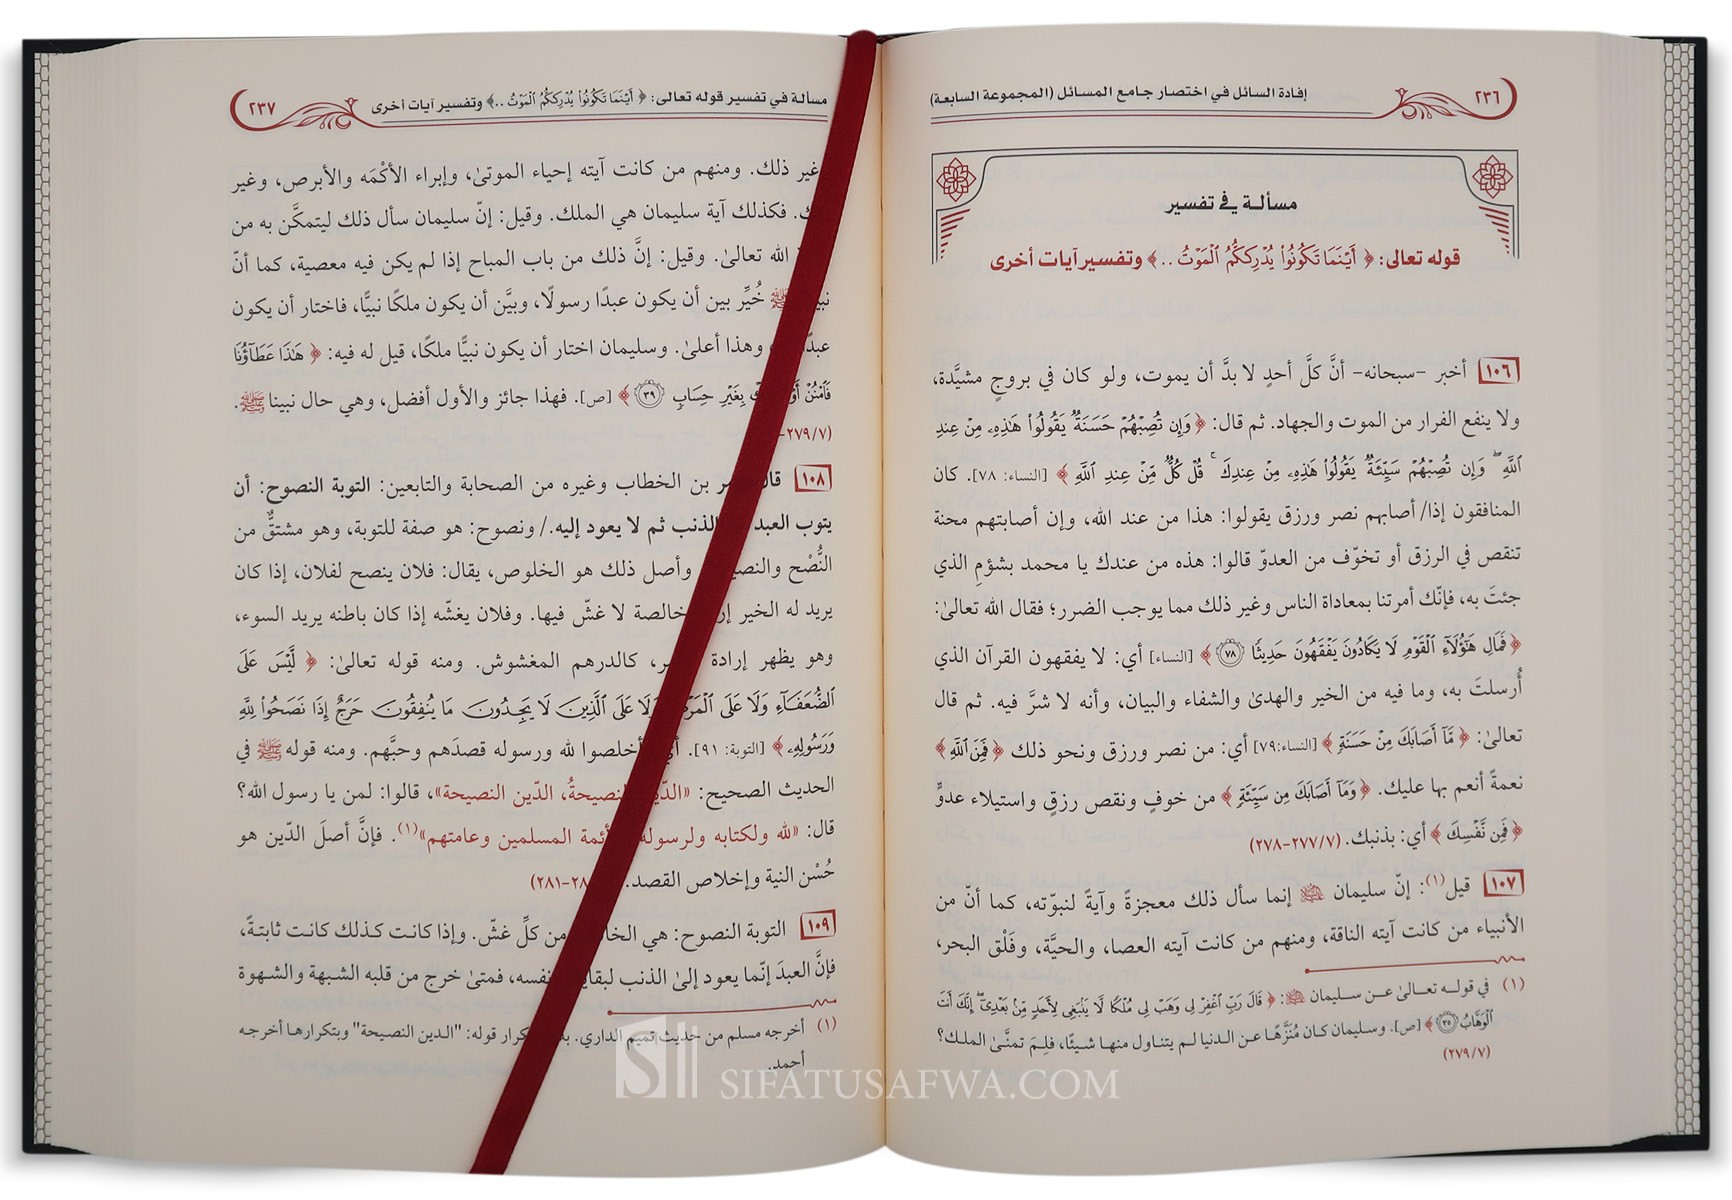 إفادة السائل في اختصار جامع المسائل (المجموعة السابعة) ٢٣٦
مسألة في تفسير
قوله تعالى: ﴿ أَيْنَمَا تَكُونُوا۟ يُدْرِككُّمُ ٱلْمَوْتُ .. ﴾ وتفسير آيات أخرى
١٠٦ أخبر -سبحانه- أنَّ كلَّ أحدٍ لا بدَّ أن يموت، ولو كان في بروجٍ مشيَّدة،
ولا ينفع الفرار من الموت والجهاد. ثم قال: ﴿ وَإِن تُصِبْهُمْ حَسَنَةٌ يَقُولُوا۟ هَٰذِهِۦ مِنْ عِندِ
ٱللَّهِ ۖ وَإِن تُصِبْهُمْ سَيِّئَةٌ يَقُولُوا۟ هَٰذِهِۦ مِنْ عِندِكَ ۚ قُلْ كُلٌّ مِّنْ عِندِ ٱللَّهِ ﴾ [النساء: ٧٨]. كان
المنافقون إذا/ أصابهم نصر ورزق يقولوا: هذا من عند الله، وإن أصابتهم محنة
تنقص في الرزق أو تخوّف من العدوّ قالوا: هذه من عندك يا محمد بشؤمِ الذي
جئتَ به، فإنّك أمرتنا بمعاداة الناس وغير ذلك مما يوجب الضرر؛ فقال الله تعالىٰ:
﴿ فَمَالِ هَٰٓؤُلَآءِ ٱلْقَوْمِ لَا يَكَادُونَ يَفْقَهُونَ حَدِيثًا ٧٨ ﴾ [النساء] أي: لا يفقهون القرآن الذي
أُرسلتَ به، وما فيه من الخير والهدىٰ والشفاء والبيان، وأنه لا شرَّ فيه. ثم قال
تعالىٰ: ﴿ مَّآ أَصَابَكَ مِنْ حَسَنَةٍ ﴾ [النساء:٧٩] أي: من نصر ورزق ونحو ذلك ﴿ فَمِنَ ٱللَّهِ ﴾
نعمةً أنعم بها عليك. ﴿ وَمَآ أَصَابَكَ مِن سَيِّئَةٍ ﴾ من خوفٍ ونقص رزقٍ واستيلاء عدوٍّ
﴿ فَمِن نَّفْسِكَ ﴾ أي: بذنبك. (٧/ ٢٧٧-٢٧٨)
١٠٧ قيل(١): إنّ سليمان ﷺ إنما سأل ذلك معجزةً وآيةً لنبوّته، كما أنّ من
الأنبياء من كانت آيته الناقة، ومنهم من كانت آيته العصا، والحيَّة، وفَلْق البحر،
(١) في قوله تعالىٰ عن سليمان ﷺ: ﴿ قَالَ رَبِّ ٱغْفِرْ لِى وَهَبْ لِى مُلْكًا لَّا يَنۢبَغِى لِأَحَدٍ مِّنۢ بَعْدِىٓ ۖ إِنَّكَ أَنتَ
ٱلْوَهَّابُ ٣٥ ﴾ [ص]. وسليمان كان مُنَزَّهًا عن الدنيا لم يتناول منها شيئًا، فلِمَ تمنَّىٰ الملك؟
(٧/ ٢٧٩)
مسألة في تفسير قوله تعالى: ﴿ أَيْنَمَا تَكُونُوا۟ يُدْرِككُّمُ ٱلْمَوْتُ .. ﴾ وتفسير آيات أخرى ٢٣٧
غير ذلك. ومنهم من كانت آيته إحياء الموتىٰ، وإبراء الأكْمَه والأبرص، وغير
فكذلك آية سليمان هي الملك. وقيل: إنّ سليمان سأل ذلك ليتمكَّن به من
الله تعالىٰ. وقيل: إنَّ ذلك من باب المباح إذا لم يكن فيه معصية، كما أنّ
ﷺ خُيِّر بين أن يكون عبدًا رسولًا، وبيَّن أن يكون ملكًا نبيًّا، فاختار أن يكون
وهذا أعلىٰ. وسليمان اختار أن يكون نبيًّا ملكًا، قيل له فيه: ﴿ هَٰذَا عَطَآؤُنَا
فَٱمْنُنْ بِغَيْرِ حِسَابٍ ٣٩ ﴾ [ص]. فهذا جائز والأول أفضل، وهي حال نبينا ﷺ.
(٧/ ٢٧٩-
١٠٨ بن الخطاب وغيره من الصحابة والتابعين: التوبة النصوح: أن
يتوب العبد الذنب ثم لا يعود إليه./ ونصوح: هو صفة للتوبة، وهو مشتقٌّ من
النُّصْح وأصل ذلك هو الخلوص، يقال: فلان ينصح لفلان، إذا كان
يريد له الخير خالصة لا غشّ فيها. وفلان يغشّه إذا كان باطنه يريد السوء،
وهو يظهر إرادة كالدرهم المغشوش. ومنه قوله تعالىٰ: ﴿ لَّيْسَ عَلَى
ٱلضُّعَفَآءِ وَلَا عَلَى وَلَا عَلَى ٱلَّذِينَ لَا يَجِدُونَ مَا يُنفِقُونَ حَرَجٌ إِذَا نَصَحُوا۟ لِلَّهِ
وَرَسُولِهِۦ ﴾ [التوبة: ٩١]. أخلصوا لله ورسوله قصدَهم وحبَّهم. ومنه قوله ﷺ في
الحديث الصحيح: «الدّين النصيحةُ، الدّين النصيحة»، قالوا: لمن يا رسول الله؟
قال: «لله ولكتابه ولرسوله المسلمين وعامتهم»(١). فإنَّ أصلَ الدّين هو
حُسْن النية وإخلاص القصد. -٢٨١)
١٠٩ التوبة النصوح: هي من كلِّ غشّ. وإذا كانت كذلك كانت ثابتةً،
فإنَّ العبدَ إنّما يعود إلىٰ الذنب نفسه، فمتىٰ خرج من قلبه الشبهة والشهوة
(١) أخرجه مسلم من حديث تميم الداري. قوله: "الدين النصيحة" وبتكرارها أخرجه
أحمد.
SIFATUSAFWA.COM